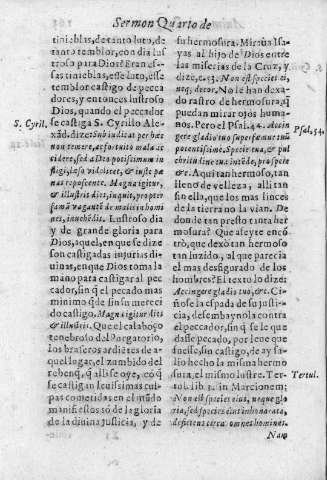 Sermon Quarto de
tinieblas, de tanto luto, de
tanto temblor, con dia lus
troso para Dios? Eran es-
sas tinieblas, esse luto, esse
temblor castigo de pecca
dores, y entonces lustroso
Dios, quando el peccador
S. Cyril.
se castiga S. Cyrillo Ale-
xãd. dize: Sub iudicat per hæc
non temere, ac fortuito mala ac
cidere, sed a Deo potissimum in
fligi, læsa videlicet, & iustè pœ
nas reposcente. Magna igitur,
& illustris dies, inquit, propter
famã vagantẽ de malitia homi
nes, inuehẽdit. Lustroso dia
y de grande gloria para
Dios, aquel, en que se dize
son castigadas injurias di-
uinas, en que Dios toma la
mano para castigar al pec
cador, sin q̃ el pecado mas
minimo q̃de sin su mereci
do castigo. Magna igitur dies
& illustris. Que el calaboço
tenebroso del Purgatorio,
los braseros ardiẽtes de a-
quel lugar, el zumbido del
rebenq̃, q̃ alli se oye, cõ q̃
se castigan leuissimas cul-
pas cometidas en el mũdo
manifiestos sõ de la gloria
de la diuina Iusticia, y de
su hermosura. Miraua Isa-
yas al hijo de Dios entre
las miserias de la Cruz, y
dize, c.53. Non est species ei,
neq; decor. No le han dexa-
do rastro de hermosura, q̃
puedan mirar ojos huma-
nos. Pero el Psal. 44. Accin
Psal. 54.
gere gladio tuo super fæmur tuũ
potentissime. Specie tua, & pul
chritudine tua intẽde, prospere
&c. Aqui tan hermoso, tan
lleno de velleza, alli tan
sin ella, que los mas linces
de la tierra no la vian. De
donde tan presto tanta her
mosura? Que afeyte encõ
trò, que dexò tan hermoso
tan luzido, al que parecia
el mas desfigurado de los
hombres? El texto lo dize:
Accingere gladio tuo, &c. Ci-
ñose la espada de su justi-
cia, desembaynola contra
el peccador, sin q̃ se le que
dasse pecado, por leue que
fuesse, sin castigo, de ay sa-
lio hecho la misma hermo
sura, el mismo lustre. Ter-
Tertul.
tul. lib. 3. in Marcionem:
Non est species eius, neque glo
ria, sed species eius inhonorata,
deficiens citra omnes homines.
Nam